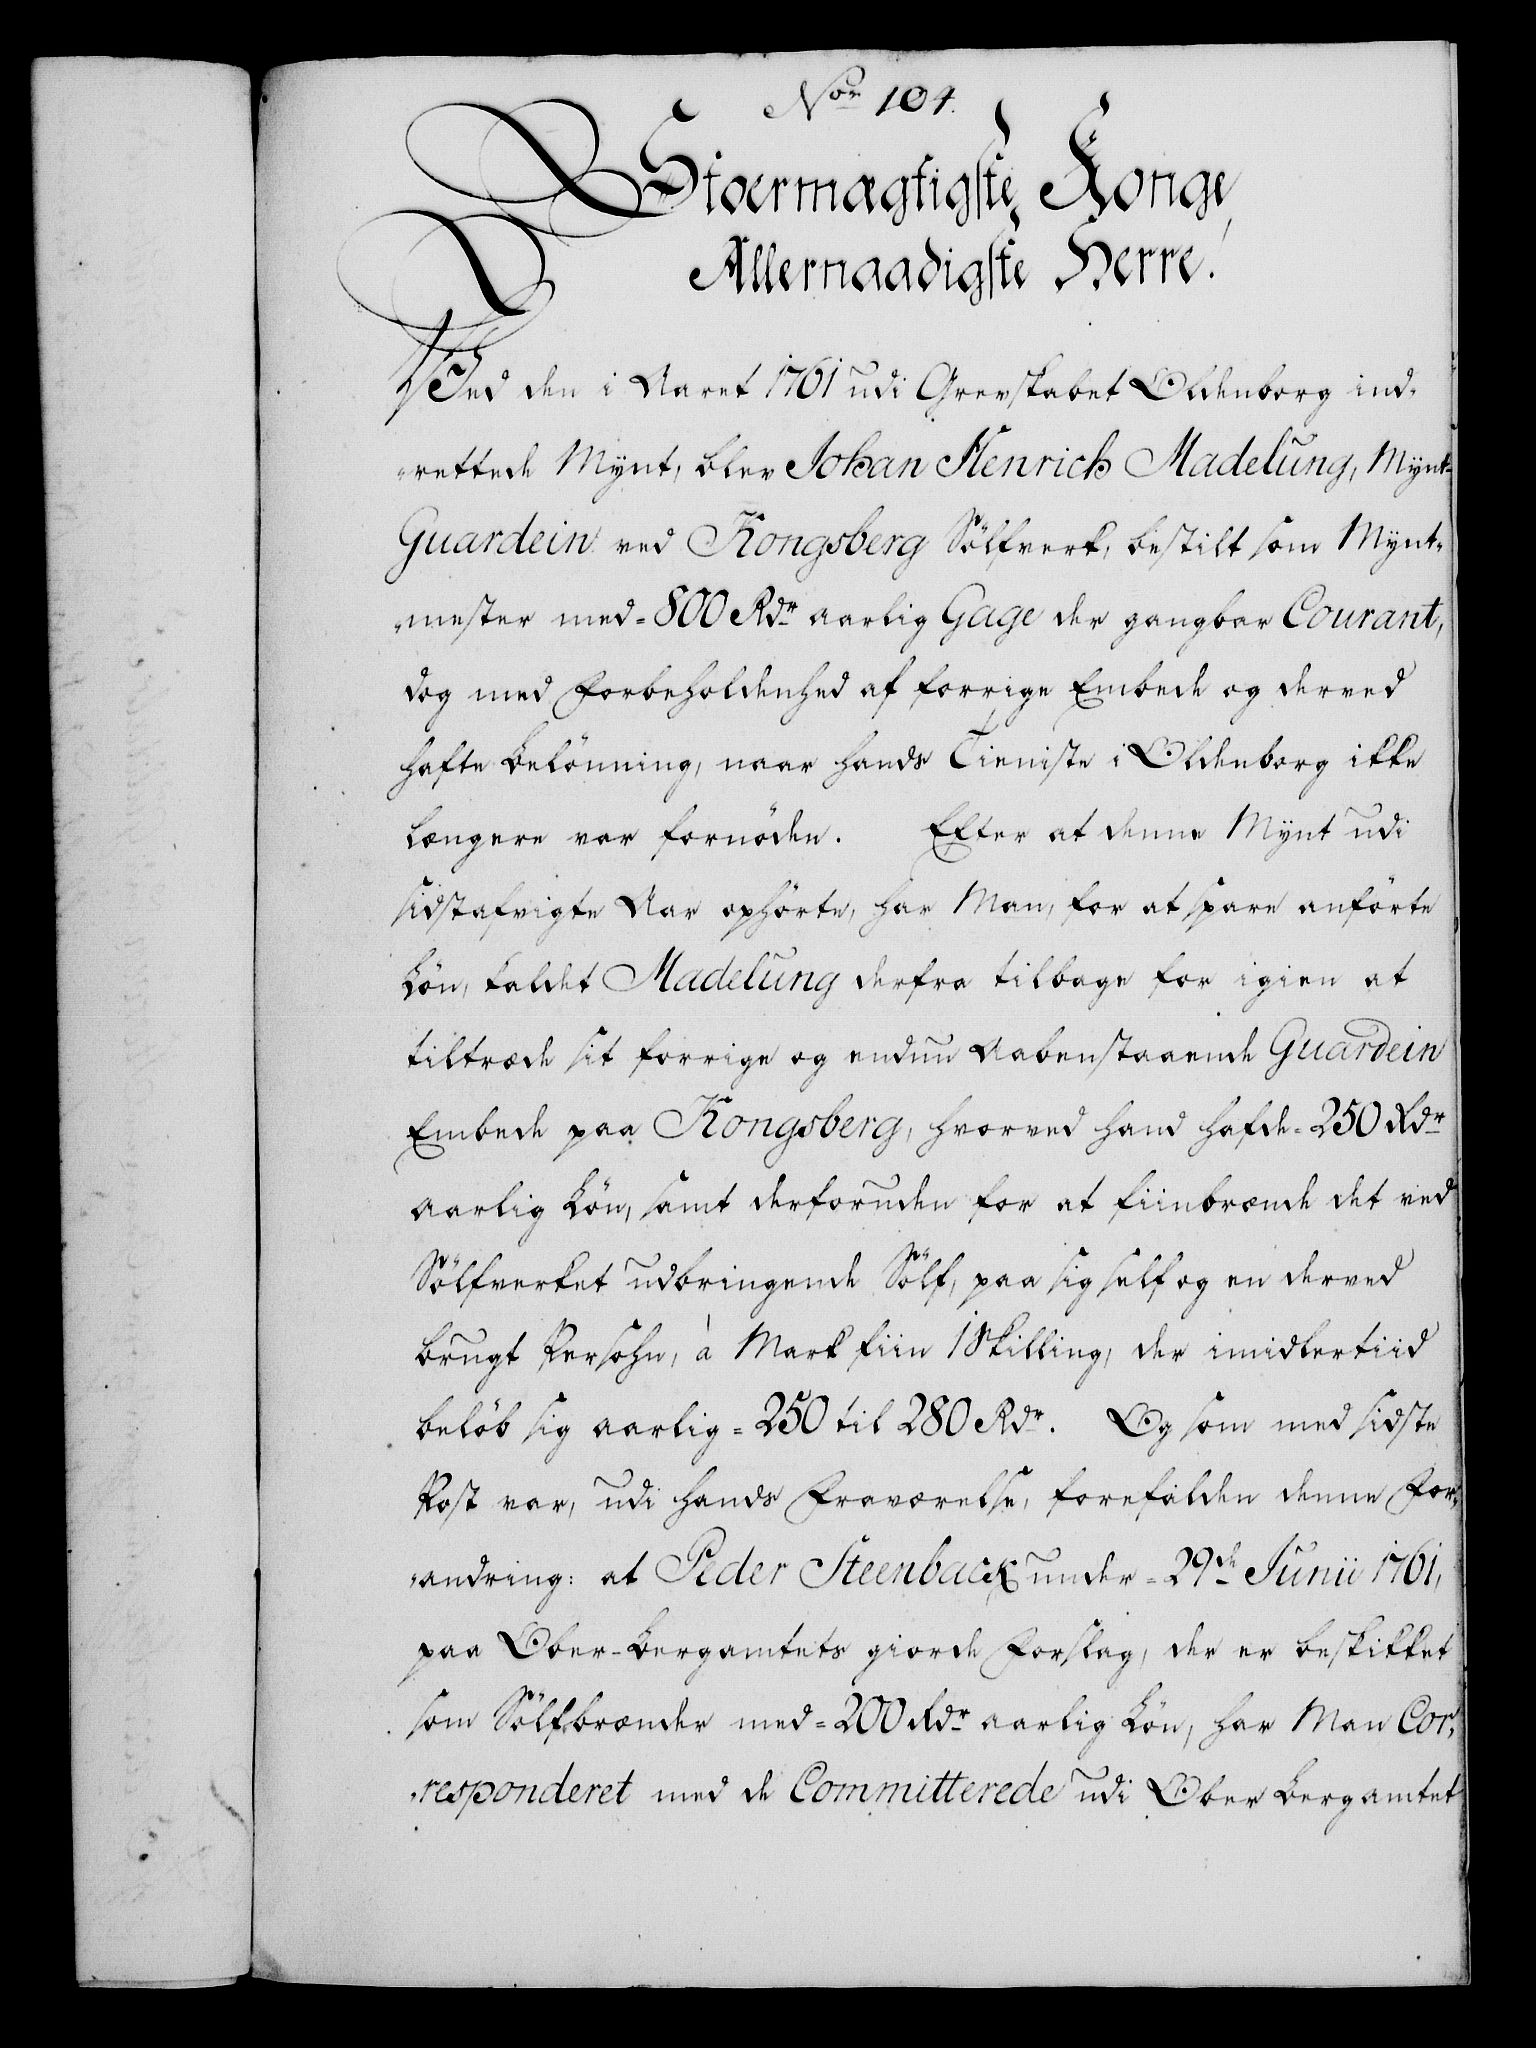 Nor 104.
Stoermægtigste Konge
Allernaadigste Herre!
Ved den i Aaret 1761 udi Grevskabet Oldenborg ind-
rettede Mÿnt, blev Johan Henrich Madelung, Mÿnt-
Guardein ved Kongsberg Sölfverk, bestilt som Mÿnt-
mester med = 800 Rdr aarlig Gage der gangbar Courant,
dog med Forbeholdenhed af forrige Embede og derved
hafte Belönning, naar hands Tieniste i Oldenborg ikke
længere var fornöden. Efter at denne Mÿnt udi
sidstafvigte Aar ophörte, har Man, for at spare anförte
Lön, kaldet Madelung derfra tilbage for igien at
tiltræde sit forrige og endnu Aabenstaaende Guardein
Embede paa Kongsberg, hvorved hand hafde = 250 Rdr
aarlig Lön, samt derforuden for at fiinbrænde det ved
Sölfverket udbringende Sölf, paa sig self og en derved
brugt Persohn, à Mark fiin 1 Skilling, der imidlertiid
belöb sig aarlig = 250 til 280 Rdr. Og som med sidste
Post var, udi hands Fraværelse, forefalden denne For-
andring: at Peder Steenback under = 29de Junii 1761,
paa Ober-Bergamtets giorde Forslag, der er beskikket
som Sölfbrænder med = 200 Rdr aarlig Lön, har Man Cor-
responderet med de Committerede udi Ober Bergamtet